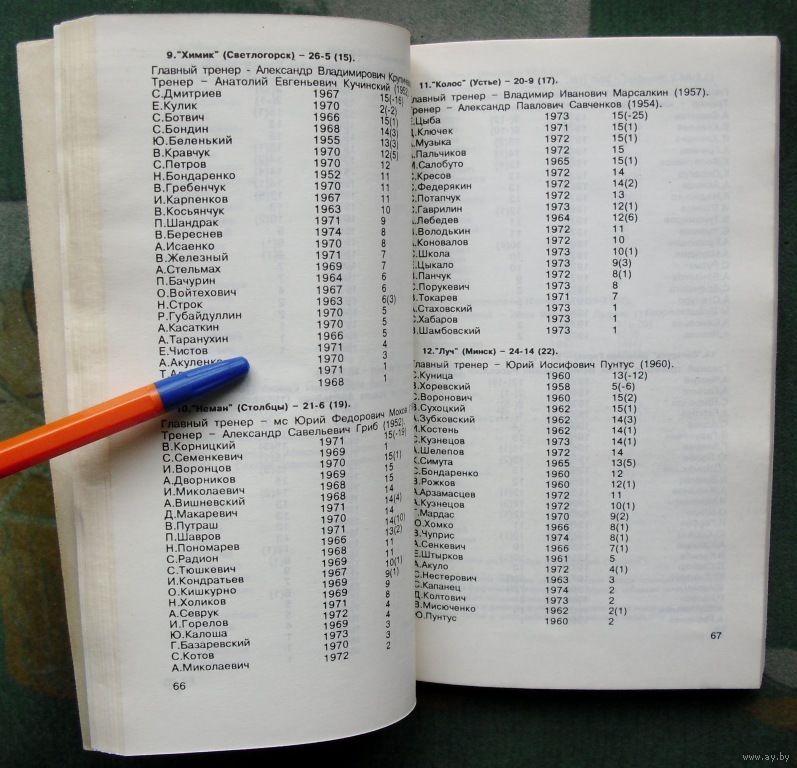 9."Химик" (Светлогорск) – 26-5 (15).
Главный тренер - Александр Владимирович
Тренер – Анатолий Евгеньевич Кучинский
С.Дмитриев 1967 15(-16)
Е.Кулик 1970 2(-2)
С.Ботвич 1966 15(1)
С.Бондин 1968 14(3)
Ю.Беленький 1955 13(3)
В.Кравчук 1970 12(5)
С.Петров 1970 12
Н.Бондаренко 1952 11
В.Гребенчук 1970 11
И.Карпенков 1967 11
В.Косьянчук 1963 10
П.Шандрак 1971 9
В.Береснев 1974 8
А.Исаенко 1970 8
В.Железный 1971 7
А.Стельмах 1969 7
П.Бачурин 1964 6
О.Войтехович 1967 6
Н.Строк 1963 6(3)
Р.Губайдуллин 1970 5
А.Касаткин 1970 5
А.Таранухин 1966 5
Е.Чистов 1971 4
А.Акуленко 1970 3
1971 1
1968 1
10."Неман" (Столбцы) – 21-6 (19).
Главный тренер – мс Юрий Федорович
Тренер – Александр Савельевич Гриб (1952).
В.Корницкий 1971 15(-19)
С.Семенкевич 1969 1
И.Воронцов 1970 15(1)
А.Дворников 1969 15
И.Миколаевич 1968 15
А.Вишневский 1968 14
Д.Макаревич 1971 14(4)
В.Путраш 1970 14
П.Шавров 1971 14(10)
Н.Пономарев 1966 13(2)
С.Радион 1968 11
С.Тюшкевич 1967 11
И.Кондратьев 1969 10(1)
О.Кишкурно 1969 9(1)
Н.Холиков 1969 9
А.Севрук 1971 8
И.Горелов 1972 4
Ю.Калоша 1969 4
Г.Базаревский 1973 3
С.Котов 1970 3
А.Миколаевич 1972 2
66
11."Колос" (Устье) – 20-9 (17).
Главный тренер – Владимир Иванович Марсалкин (1957).
Тренер – Александр Павлович Савченков (1954).
Цыба 1973 15(-25)
Ключек 1971 15(1)
Музыка 1972 15(1)
Пальчиков 1972 15
Салобуто 1965 15(1)
Кресов 1972 14
Федерякин 1972 14(2)
Потапчук 1972 13
Гаврилин 1973 12(1)
Лебедев 1964 12(6)
Володькин 1972 11
Коновалов 1972 10
Школа 1973 10(1)
Цыкало 1973 9(3)
Панчук 1972 8(1)
Порукевич 1973 8
Токарев 1971 7
Стаховский 1973 1
Хабаров 1973 1
Шамбовский 1973 1
12."Луч" (Минск) – 24-14 (22).
Главный тренер – Юрий Иосифович Пунтус (1960).
Куница 1960 13(-12)
Хоревский 1958 5(-6)
Воронович 1960 15(2)
Сухоцкий 1962 15(1)
Зубковский 1962 14(3)
Костень 1962 14(1)
Кузнецов 1973 14(1)
Шелепов 1972 14
Симута 1965 13(5)
Бондаренко 1960 12
Рожков 1960 12(1)
Арзамасцев 1972 11
Кузнецов 1972 10(1)
Мардас 1970 9(2)
Хомко 1966 8(1)
Чуприс 1974 8(1)
Сенкевич 1966 7(1)
Штырков 1961 5
Акуло 1972 4(1)
Нестерович 1963 3
Капанец 1974 2
Колтович 1973 2
Мисюченко 1962 2(1)
Пунтус 1960 2
67
www.ay.by